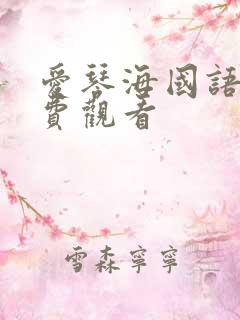 愛琴海國語
費觀看
雪森寧寧